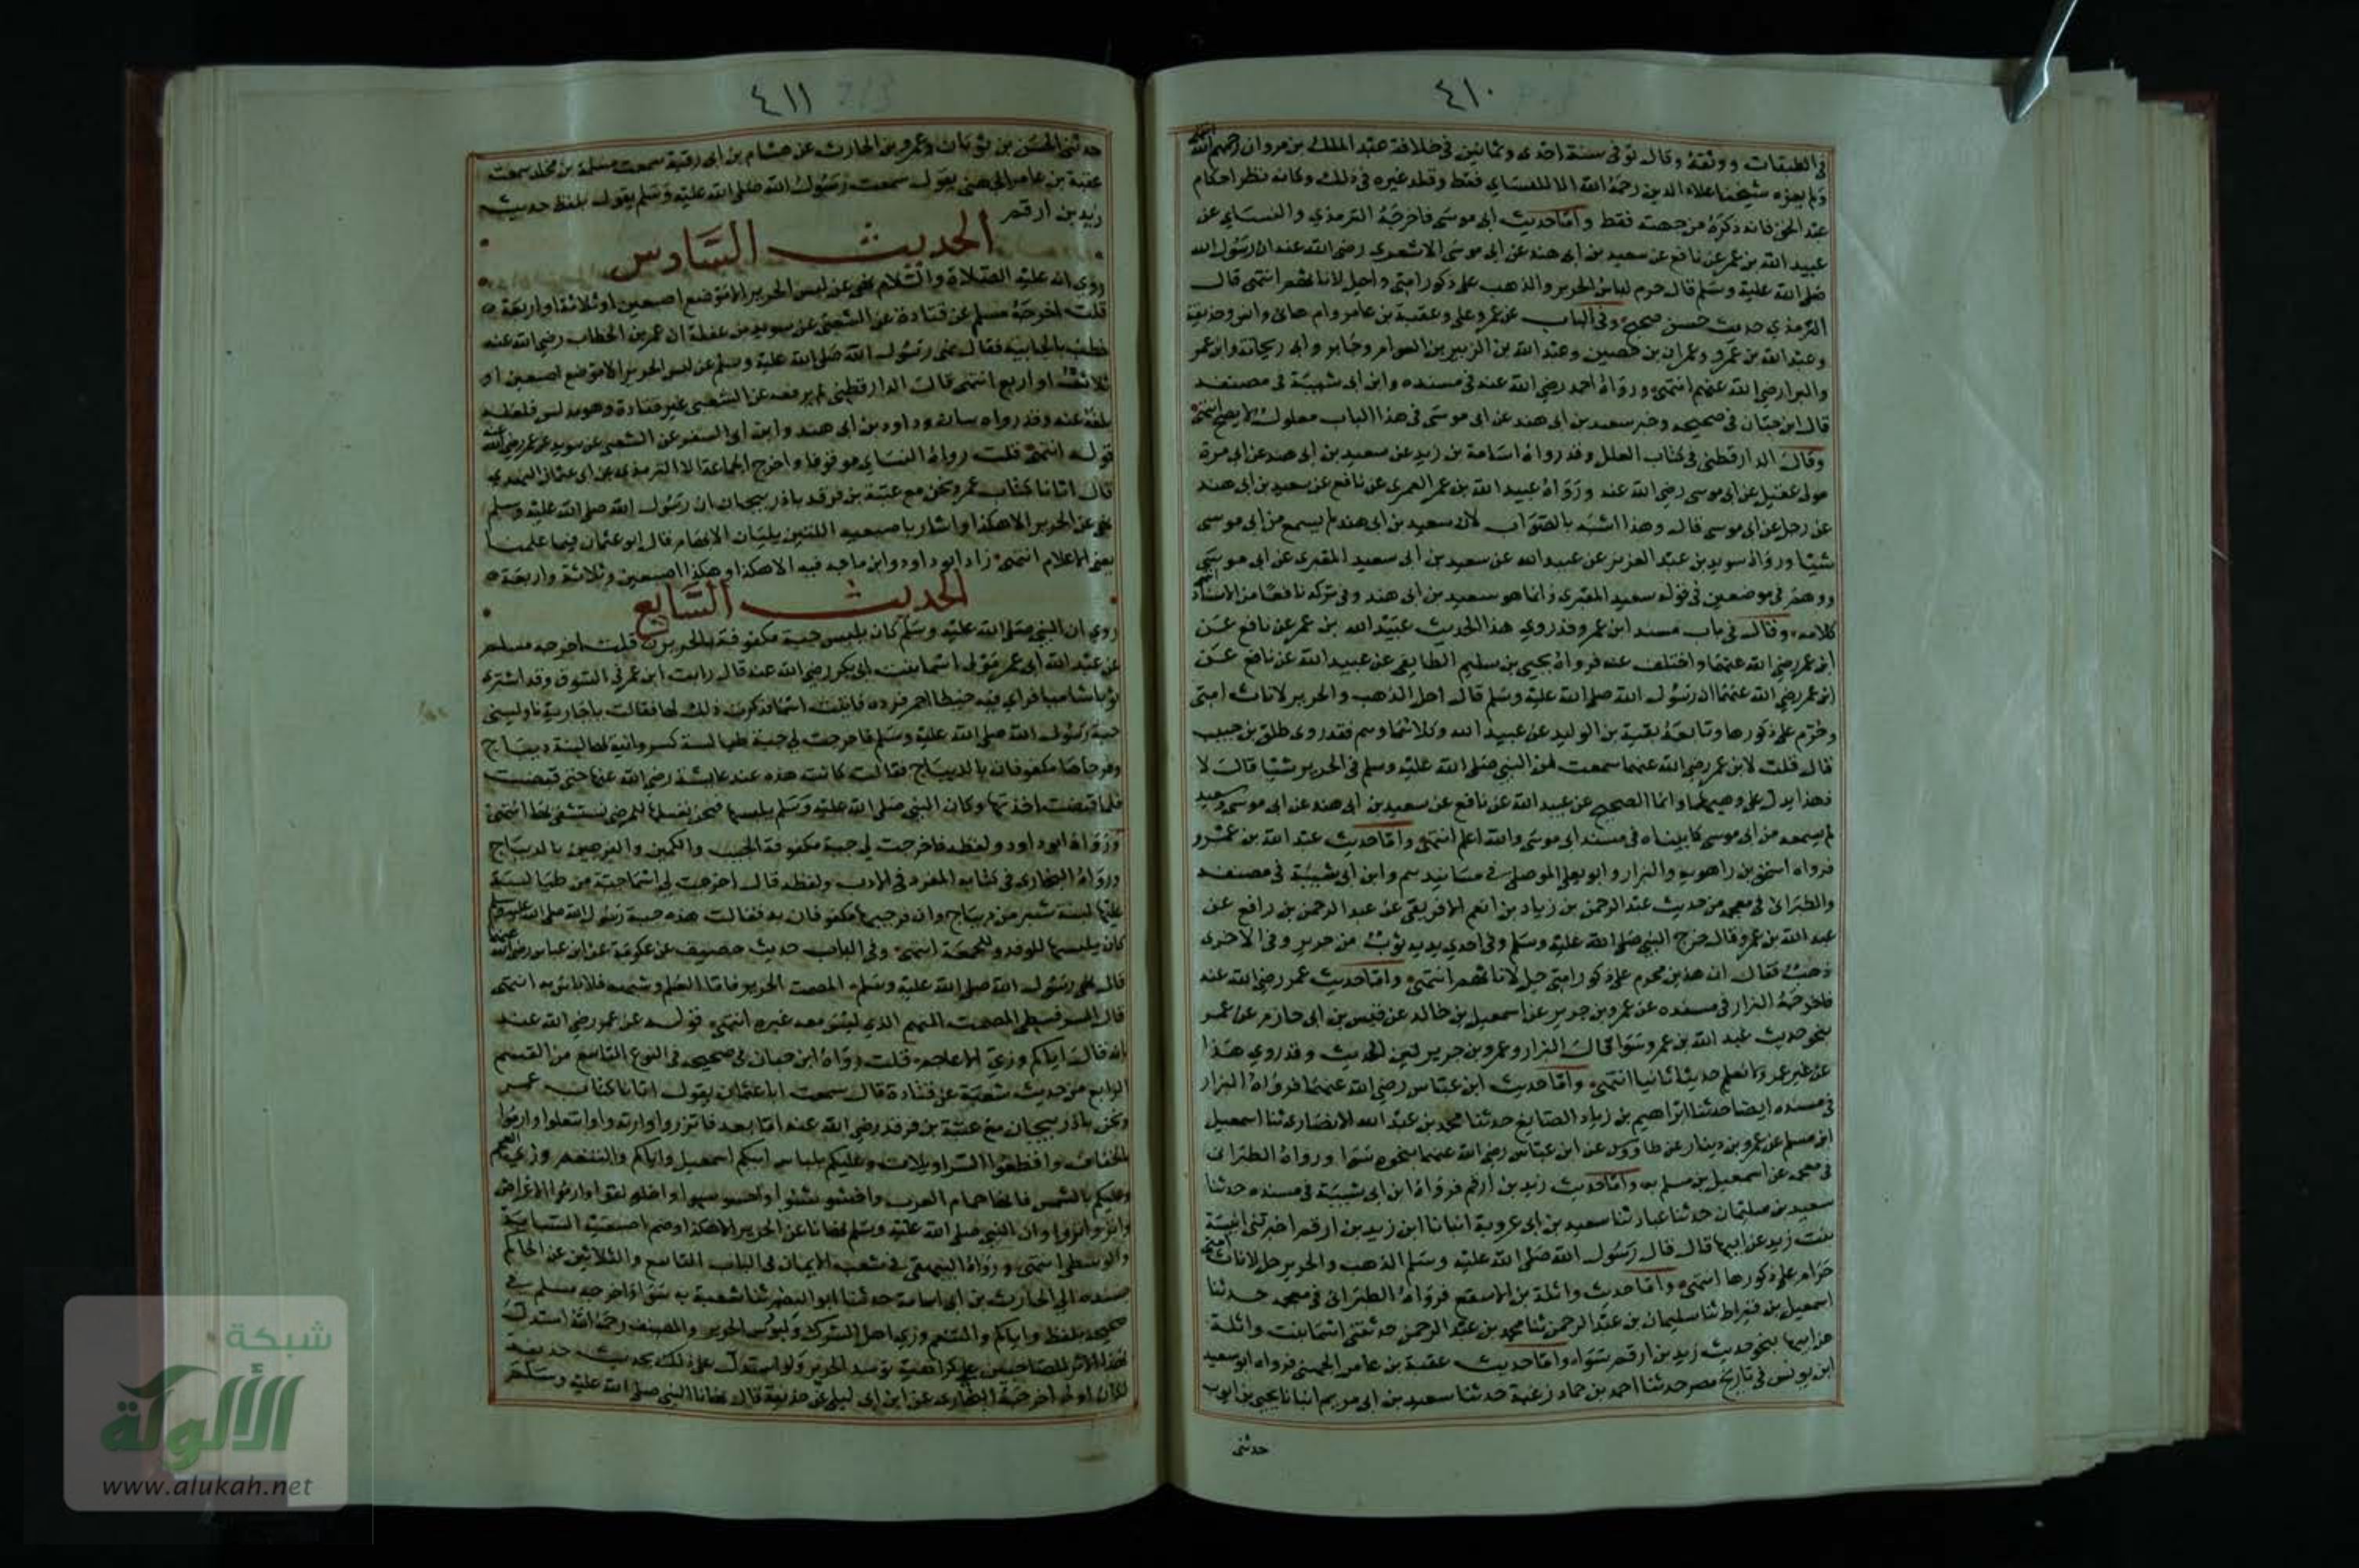 ٤١٠
في الطبقات ووثقه وقال توفي سنة احدى وثمانين في خلافة عبد الملك بن مروان رحمهم الله انتهى
ولم يعزه شيخنا علاء الدين رحمه الله الا للنساي فقط وقلد غيره في ذلك وكانه نظر احكام
عبد الحق فانه ذكره من جهته فقط واما حديث ابي موسى فاخرجه الترمذي والنساي عن
عبيد الله بن عمر عن نافع عن سعيد بن ابي هند عن ابي موسى الاشعري رضي الله عنه ان رسول الله
صلى الله عليه وسلم قال حرم لباس الحرير والذهب على ذكور امتي واحل لاناثهم انتهى قال
الترمذي حديث حسن صحيح وفي الباب عن عمر وعلي وعقبة بن عامر وام هانئ وانس وحذيفة
وعبد الله بن عمرو وعمران بن حصين وعبد الله بن الزبير بن العوام وجابر وابي ريحانة وابن عمر
والبرا رضي الله عنهم انتهى ورواه احمد رضي الله عنه في مسنده وابن ابي شيبة في مصنفه
قال ابن حبان في صحيحه وخبر سعيد بن ابي هند عن ابي موسى في هذا الباب معلول لا يصح انتهى
وقال الدارقطني في كتاب العلل وقد رواه اسامة بن زيد عن سعيد بن ابي هند عن ابي مرة
مولى عقيل عن ابي موسى رضي الله عنه ورواه عبيد الله بن عمر العمري عن نافع عن سعيد بن ابي هند
عن رجل عن ابي موسى قال وهذا اشبه بالصواب لان سعيد بن ابي هند لم يسمع من ابي موسى
شيئا ورواه سويد بن عبد العزيز عن عبيد الله عن سعيد بن ابي سعيد المقبري عن ابي موسى
ووهم في موضعين في قوله سعيد المقبري وانما هو سعيد بن ابي هند وفي تركه نافعا من الاسناد انتهى
كلامه وقال في باب مسند ابن عمر وقد روي هذا الحديث عبيد الله بن عمر عن نافع عن
ابن عمر رضي الله عنهما واختلف عنه فرواه يحيى بن سليم الطايفي عن عبيد الله عن نافع عن
ابن عمر رضي الله عنهما ان رسول الله صلى الله عليه وسلم قال احل الذهب والحرير لاناث امتي
وحرم على ذكورها وتابعه بقية بن الوليد عن عبيد الله وكلاهما وهم فقد روى طلق بن حبيب
قال قلت لابن عمر رضي الله عنهما سمعت من النبي صلى الله عليه وسلم في الحرير شيئا قال لا
فهذا يدل على وهمهما وانما الصحيح عن عبيد الله عن نافع عن سعيد بن ابي هند عن ابي موسى وسعيد
لم يسمعه من ابي موسى كما بيناه في مسند ابي موسى والله اعلم انتهى واما حديث عبد الله بن عمرو
فرواه اسحق بن راهويه والبزار وابو يعلى الموصلي في مسانيدهم وابن ابي شيبة في مصنفه
والطبراني في معجمه من حديث عبد الرحمن بن زياد بن انعم الافريقي عن عبد الرحمن بن رافع عن
عبد الله بن عمرو قال خرج النبي صلى الله عليه وسلم وفي احدي يديه ثوب من حرير وفي الاخرى
ذهب فقال ان هذين محرم على ذكور امتي حل لاناثهم انتهى واما حديث عمر رضي الله عنه
فاخرجه البزار في مسنده عن عمرو بن جرير عن اسمعيل بن خالد عن قيس بن ابي حازم عن عمر
بنحو حديث عبد الله بن عمرو سوا قال البزار وعمرو بن جرير لين الحديث وقد روي هذا
عن غير عمر ولا نعلم حديثا ثابتا انتهى واما حديث ابن عباس رضي الله عنهما فرواه البزار
في مسنده ايضا حدثنا ابراهيم بن زياد الصايغ حدثنا محمد بن عبد الله الانصاري ثنا اسمعيل
ابن مسلم عن عمرو بن دينار عن طاووس عن ابن عباس رضي الله عنهما بنحوه سوا ورواه الطبراني
في معجمه عن اسمعيل بن مسلم به واما حديث زيد بن ارقم فرواه ابن ابي شيبة في مسنده حدثنا
سعيد بن سليمان حدثنا عباد ثنا سعيد بن ابي عروبة انبانا ابن زيد بن ارقم اخبرتني انيسة
بنت زيد عن ابيها قال قال رسول الله صلى الله عليه وسلم الذهب والحرير حل لاناث امتي
حرام على ذكورها انتهى واما حديث واثلة بن الاسقع فرواه الطبراني في معجمه حدثنا
اسمعيل بن قيراط ثنا سليمان بن عبد الرحمن ثنا محمد بن عبد الرحمن حدثتني اسما بنت واثلة
عن ابيها بنحو حديث زيد بن ارقم سواء واما حديث عقبة بن عامر الجهني فرواه ابو سعيد
ابن يونس في تاريخ مصر حدثنا احمد بن حماد زغبة حدثنا سعيد بن ابي مريم انبانا يحيى بن ايوب
حدثني
٤١١
حدثني الحسن بن ثوبان وعمرو بن الحارث عن هشام بن ابي رقية سمعت مسلمة بن مخلد سمعت
عقبة بن عامر الجهني يقول سمعت رسول الله صلى الله عليه وسلم يقول بلفظ حديث
زيد بن ارقم
الحديث السادس
روي انه عليه الصلاة والسلام نهى عن لبس الحرير الا موضع اصبعين او ثلاثة او اربعة
قلت اخرجه مسلم عن قتادة عن الشعبي عن سويد بن غفلة ان عمر بن الخطاب رضي الله عنه
خطب بالجابية فقال نهى رسول الله صلى الله عليه وسلم عن لبس الحرير الا موضع اصبعين او
ثلاثة او اربع انتهى قال الدارقطني لم يرفعه عن الشعبي غير قتادة وهو مدلس فلعله
بلغه عنه وقد رواه بيان وداود بن ابي هند وابن ابي السفر عن الشعبي عن سويد عن عمر رضي الله عنه
قوله انتهى قلت رواه النساي موقوفا واخرج الجماعة الا الترمذي عن ابي عثمان النهدي
قال اتانا كتاب عمر ونحن مع عتبة بن فرقد باذربيجان ان رسول الله صلى الله عليه وسلم
نهى عن الحرير الا هكذا واشار باصبعيه اللتين يليان الابهام قال ابو عثمان فيما علمنا
يعني الاعلام انتهى زاد ابو داود وابن ماجه فيه الا هكذا وهكذا اصبعين وثلاثة واربعة
الحديث السابع
روي ان النبي صلى الله عليه وسلم كان يلبس جبة مكفوفة بالحرير قلت اخرجه مسلم
عن عبد الله ابي عمر مولى اسما بنت ابي بكر رضي الله عنه قال رايت ابن عمر في السوق وقد اشترى
ثوبا شاميا فراي فيه خيطا احمر فرده فاتيت اسما فذكرت ذلك لها فقالت يا جارية ناوليني
جبة رسول الله صلى الله عليه وسلم فاخرجت لي جبة طيالسة كسروانية لها لبنة ديباج
وفرجاها مكفوفان بالديباج فقالت كانت هذه عند عايشة رضي الله عنها حتى قبضت
فلما قبضت اخذتها وكان النبي صلى الله عليه وسلم يلبسها فنحن نغسلها للمرضى نستشفى بها انتهى
ورواه ابو داود ولفظه فاخرجت لي جبة مكفوفة الجيب والكمين والفرجين بالديباج
ورواه البخاري في كتابه المفرد في الادب ولفظه قال اخرجت لي اسما جبة من طيالسة
عليها لبنة شبر من ديباج وان فرجيها مكفوفان به فقالت هذه جبة رسول الله صلى الله عليه وسلم
كان يلبسها للوفد وللجمعة انتهى وفي الباب حديث خصيف عن عكرمة عن ابن عباس رضي الله عنهما
قال نهى رسول الله صلى الله عليه وسلم المصمت الحرير فاما العلم وشبهه فلا باس به انتهى
قال السرقسطي المصمت المبهم الذي ليس معه غيره انتهى قوله عن عمر رضي الله عنه
انه قال اياكم وزي الاعاجم قلت رواه ابن حبان في صحيحه في النوع التاسع من القسم
الرابع من حديث شعبة عن قتادة قال سمعت ابا عثمان يقول اتانا كتاب عمر
ونحن باذربيجان مع عتبة بن فرقد رضي الله عنه اما بعد فاتزروا وارتدوا وانتعلوا وارموا
بالخفاف واقطعوا السراويلات وعليكم بلباس ابيكم اسمعيل واياكم والتنعم وزي العجم
وعليكم بالشمس فانها حمام العرب واخشوشنوا واخلولقوا وارموا الاغراض
وانزوا نزوا وان النبي صلى الله عليه وسلم نهانا عن الحرير الا هكذا وضم اصبعيه السبابة
والوسطى انتهى ورواه البيهقي في شعب الايمان في الباب التاسع والثلاثين عن الحاكم
بسنده الى الحارث بن ابي اسامة حدثنا ابو النضر ثنا شعبة به سواء واخرجه مسلم في
صحيحه بلفظ واياكم والتنعم وزي اهل الشرك ولبوس الحرير والمصنف رحمه الله استدل
بهذا الاثر للصاحبين على كراهية توسد الحرير ولو استدل على ذلك بحديث حذيفة
لكان اولى اخرجه البخاري عن ابن ابي ليلى عن حذيفة قال نهانا النبي صلى الله عليه وسلم
شبكة
الألوكة
www.alukah.net